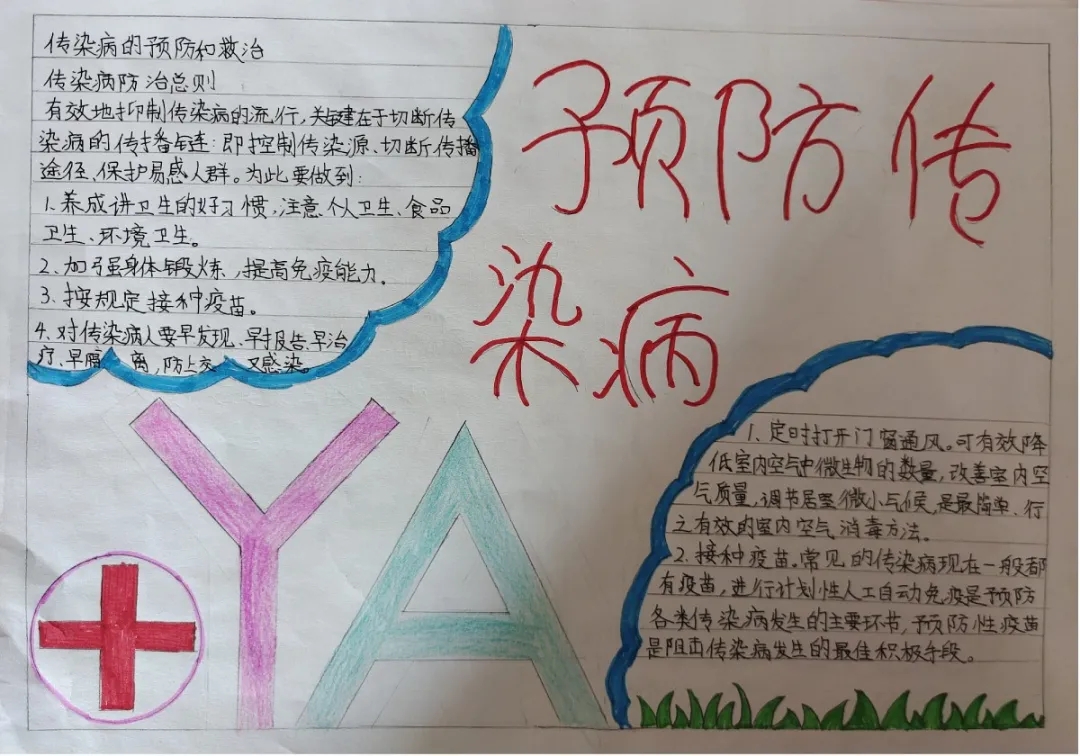 传染病的预防和救治
传染病防治总则
有效地抑制传染病的流行，关键在于切断传
染病的传播链：即控制传染源、切断传播
途径、保护易感人群。为此要做到：
1.养成讲卫生的好习惯，注意个人卫生、食品
卫生、环境卫生。
2、加强身体锻炼，提高免疫能力。
3、按规定接种疫苗。
4、对传染病人要早发现、早报告、早治
疗、早隔离，防止交叉感染。
预防传
染病
YA
1、定时打开门窗通风。可有效降
低室内空气中微生物的数量，改善室内空
气质量，调节居室微小气候，是最简单、行
之有效的室内空气消毒方法。
2、接种疫苗。常见的传染病现在一般都
有疫苗，进行计划性人工自动免疫是预防
各类传染病发生的主要环节，预防性疫苗
是阻击传染病发生的最佳积极手段。